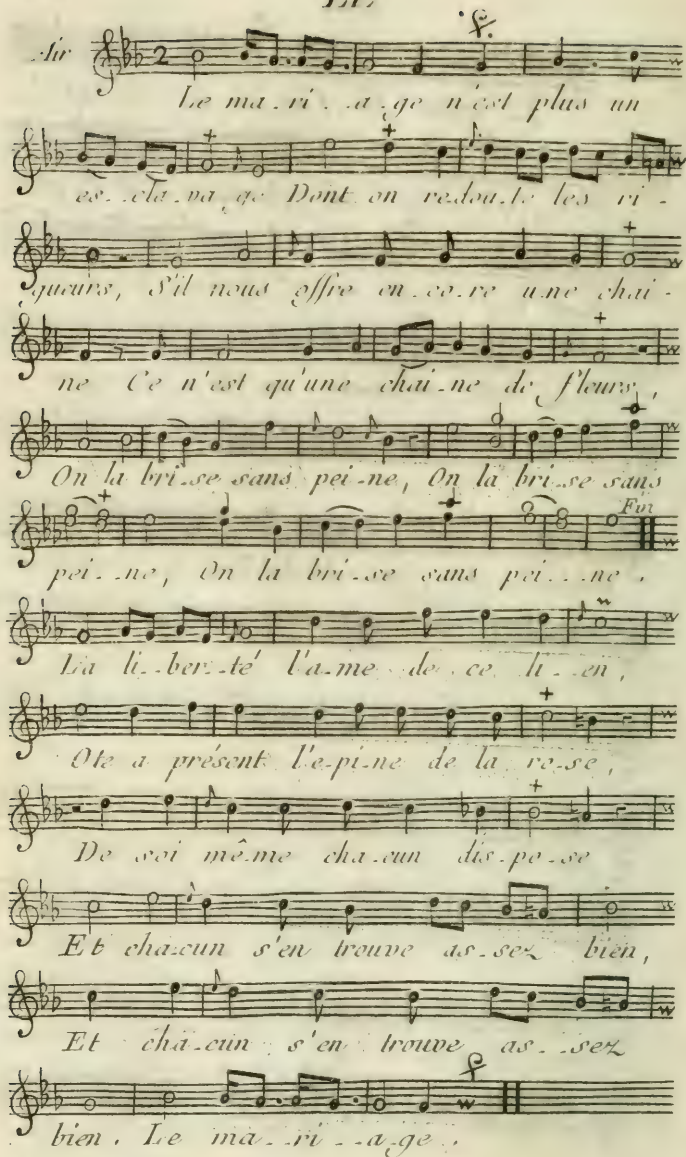 Air
Le ma-ri--a-ge n'est plus un
es--cla-va-ge Dont on redou-te les ri-
gueurs, S'il nous offre en-co-re u-ne chai-
ne Ce n'est qu'une chai-ne de fleurs,
On la bri-se sans pei-ne, On la bri-se sans
Fin
pei--ne, On la bri-se sans pei---ne.
La li-ber-té l'a-me de ce li-en,
Ote a présent l'e-pi-ne de la ro-se,
De soi même cha-cun dis-po-se
Et cha-cun s'en trouve as-sez bien,
Et cha-cun s'en trouve as--sez
bien. Le ma--ri--a-ge.